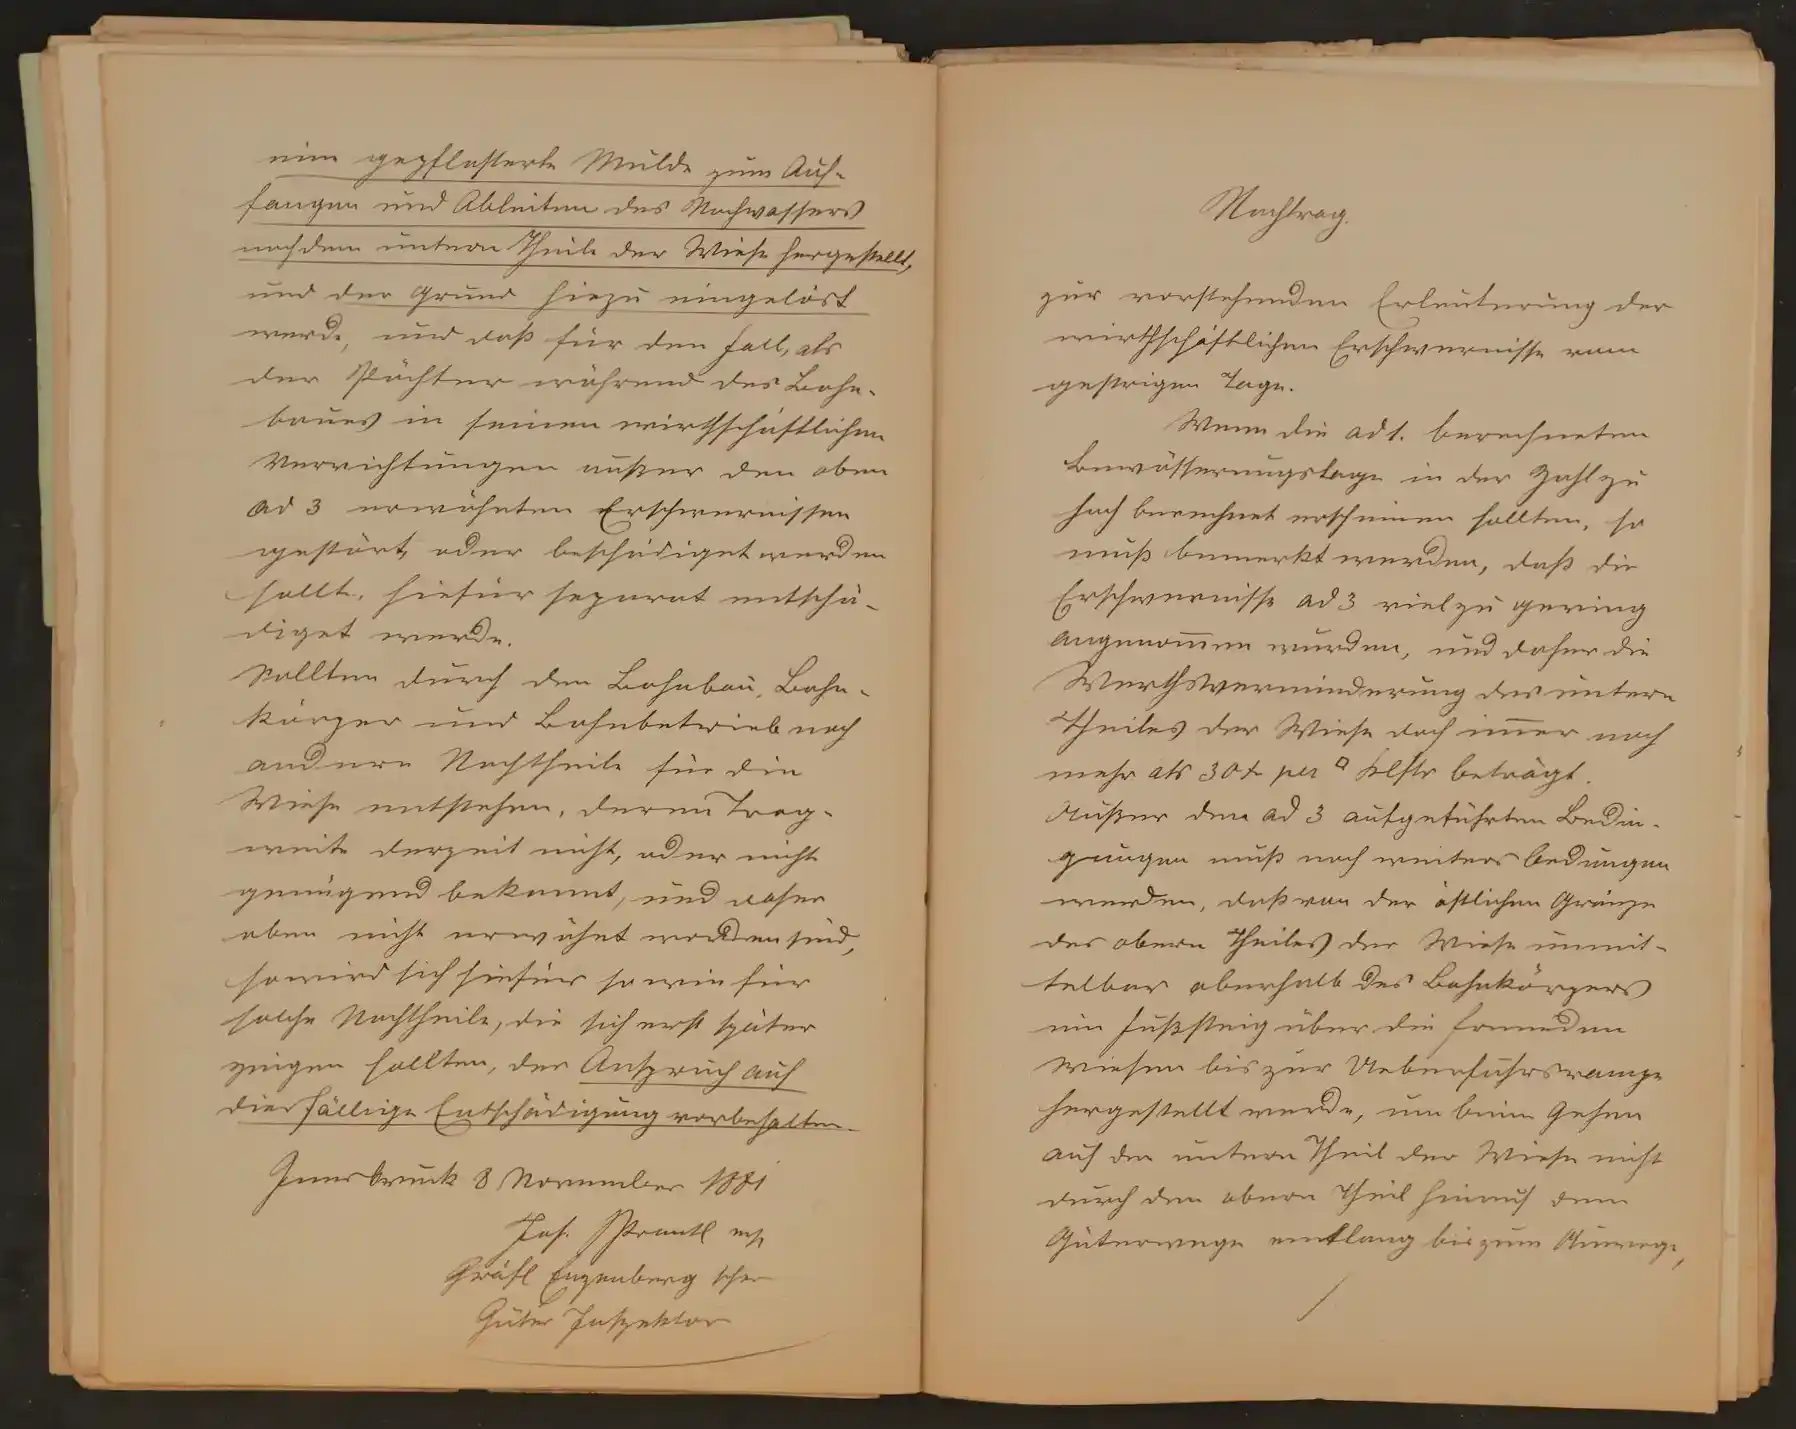 eine gepflasterte Mulde zum Auf-
fangen und Ableiten des Nachwassers
nach dem untern Theile der Wiese hergestellt,
und der Grund hiezu eingelöst
werde, und daß für den Fall, als
der Pächter während des Bahn-
baues in seinen wirthschaftlichen
Verrichtungen außer den oben
ad 3 erwähnten Erschwernissen
gestört oder beschädiget werden
sollte, hiefür separat entschä-
diget werde.
Sollten durch den Bahnbau, Bahn-
körper und Bahnbetrieb noch
andere Nachtheile für die
Wiese entstehen, deren Trag-
weite derzeit nicht, oder nicht
genügend bekannt, und daher
oben nicht erwähnt worden sind,
so wird sich hiefür so wie für
solche Nachtheile, die sich erst später
zeigen sollten, der Anspruch auf
diesfällige Entschädigung vorbehalten.
Innsbruck 8 November 1881
Jos. Prantl
Gräfl Enzenberg'scher
Güter Inspektor
Nachtrag.
zur vorstehenden Erleuterung der
wirthschäftlichen Erschwernisse vom
gestrigen Tage.
Wenn die ad 1. berechneten
Bewässerungstage in der Zahl zu
hoch berechnet erscheinen sollten, so
muß bemerkt werden, daß die
Erschwernisse ad 3 viel zu gering
angenom̅en wurden, und daher die
Werthsverminderung des untern
Theiles der Wiese doch im̅er noch
mehr als 30 x per □ Klftr beträgt.
Außer den ad 3 aufgeführten Bedin-
gungen muß noch weiters bedungen
werden, daß von der östlichen Gränze
des obern Theiles der Wiese unmit-
telbar oberhalb des Bahnkörpers
ein Fußsteig über die fremden
Wiesen bis zur Ueberfuhrsrampe
hergestellt werde, um beim Gehen
auf den untern Theil der Wiese nicht
durch den obern Theil hinauf dem
Güterwege entlang bis zum Auwege,